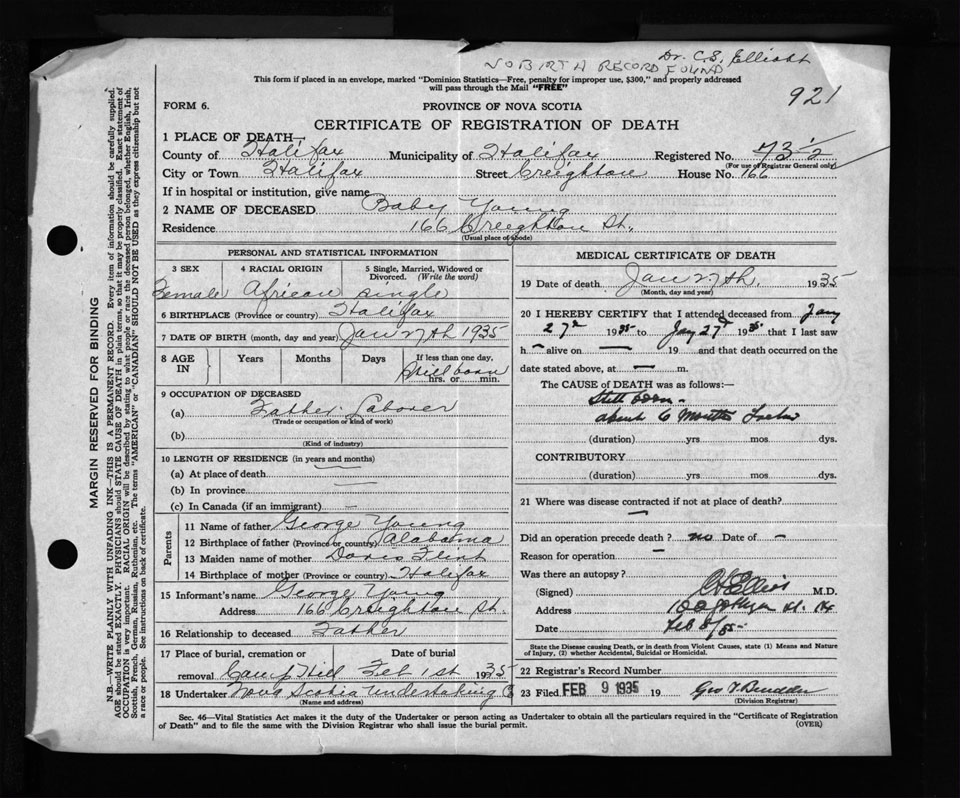 NO BIRTH RECORD FOUND Dr. C.S. Elliott
This form if placed in an envelope, marked "Dominion Statistics—Free, penalty for improper use, $300," and properly addressed
will pass through the Mail "FREE"
921
FORM 6. PROVINCE OF NOVA SCOTIA
CERTIFICATE OF REGISTRATION OF DEATH
1 PLACE OF DEATH—
County of Halifax Municipality of Halifax Registered No. 732
(For use of Registrar General only)
City or Town Halifax Street Creighton House No. 166
If in hospital or institution, give name
2 NAME OF DECEASED Baby Young
Residence 166 Creighton St.
(Usual place of abode)
PERSONAL AND STATISTICAL INFORMATION
3 SEX 4 RACIAL ORIGIN 5 Single, Married, Widowed or
Divorced. (Write the word)
Female African single
6 BIRTHPLACE (Province or country) Halifax
7 DATE OF BIRTH (month, day and year) Jan 27th 1935
8 AGE IN Years Months Days If less than one day,
Stillborn
hrs. or min.
9 OCCUPATION OF DECEASED
(a) Father Laborer
(Trade or occupation or kind of work)
(b)
(Kind of industry)
10 LENGTH OF RESIDENCE (in years and months)
(a) At place of death —
(b) In province —
(c) In Canada (if an immigrant) —
Parents
11 Name of father George Young
12 Birthplace of father (Province or country) Alabama
13 Maiden name of mother Doris Flint
14 Birthplace of mother (Province or country) Halifax
15 Informant's name George Young
Address 166 Creighton St.
16 Relationship to deceased Father
17 Place of burial, cremation or Date of burial
removal Camp Hill Feb 1st 1935
18 Undertaker Nova Scotia Undertaking Co
(Name and address)
MEDICAL CERTIFICATE OF DEATH
19 Date of death Jan 27th. 1935
(Month, day and year)
20 I HEREBY CERTIFY that I attended deceased from Jany
27th 1935 to Jany 27th 1935 that I last saw
h— alive on — 19 and that death occurred on the
date stated above, at — m.
The CAUSE OF DEATH was as follows:—
Still born —
about 6 Months
(duration) yrs mos dys.
CONTRIBUTORY
(duration) yrs. mos. dys.
21 Where was disease contracted if not at place of death?
—
Did an operation precede death? no Date of —
Reason for operation —
Was there an autopsy?
(Signed) M.D.
Address
Date Feb 8/35
State the Disease causing Death, or in death from Violent Causes, state (1) Means and Nature
of Injury, (2) whether Accidental, Suicidal or Homicidal.
22 Registrar's Record Number
23 Filed FEB 9 1935 19
(Division Registrar)
Sec. 46—Vital Statistics Act makes it the duty of the Undertaker or person acting as Undertaker to obtain all the particulars required in the "Certificate of Registration
of Death" and to file the same with the Division Registrar who shall issue the burial permit. (OVER)
MARGIN RESERVED FOR BINDING
N.B.—WRITE PLAINLY WITH UNFADING INK—THIS IS A PERMANENT RECORD. Every item of information should be carefully supplied.
AGE should be stated EXACTLY. PHYSICIANS should STATE CAUSE OF DEATH in plain terms, so that it may be properly classified. Exact statement of
OCCUPATION is very important. RACIAL ORIGIN will be described by stating to what people or race the deceased person belonged, whether English, Irish,
Scottish, French, German, Russian, Ruthenian, etc. The terms "AMERICAN" or "CANADIAN" SHOULD NOT BE USED as they express citizenship but not
a race or people. See instructions on back of certificate.